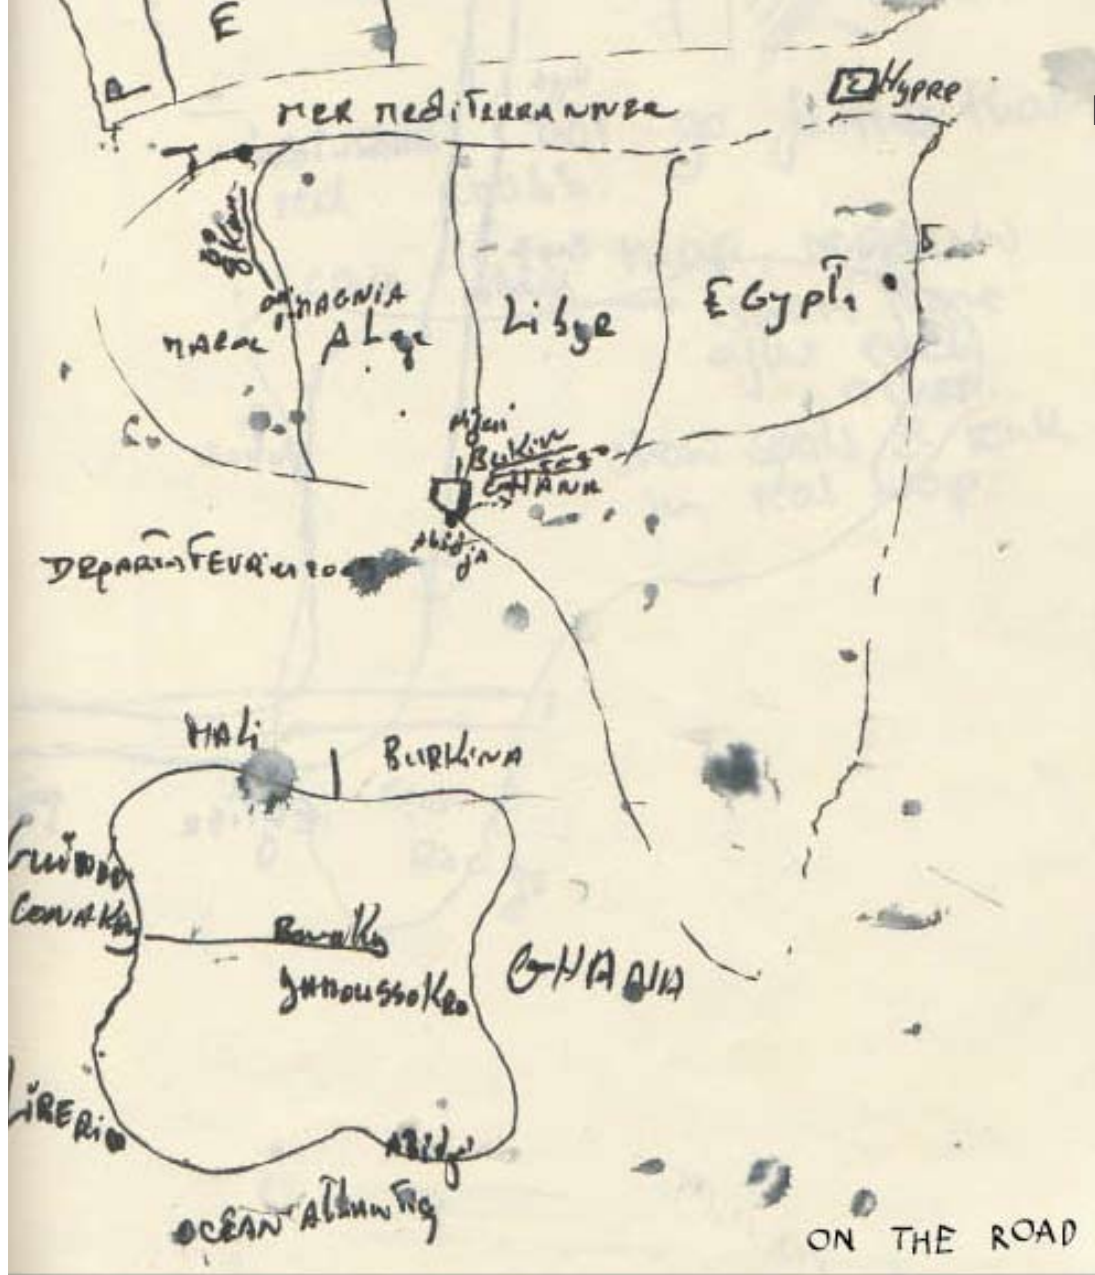 E
P
CHYPRE
MER MEDITERRANNER
T
MAGNIA
MAROC
ALge
LiByR
EGypTe
Burkin
GHANA
Abidja
DEPARTS FEVRier 20
MALi
BURKINA
Guinnee
CONAKRy
BouaKe
YAMOUSSOKRO
GHANA
LIBERIA
Abidja
OCEAN ATLANTiq
ON THE ROAD